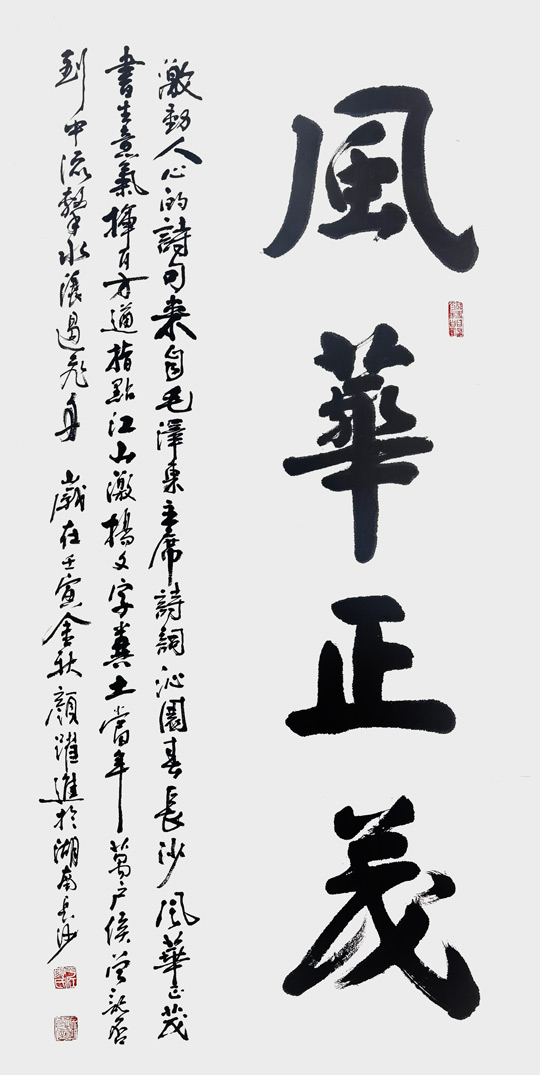 風華正茂
激動人心的詩句來自毛澤東主席詩詞沁園春長沙風華正茂
書生意氣揮斥方遒指點江山激揚文字糞土當年萬戶侯曾記否
到中流擊水浪遏飛舟 歲在壬寅金秋顏躍進於湖南長沙